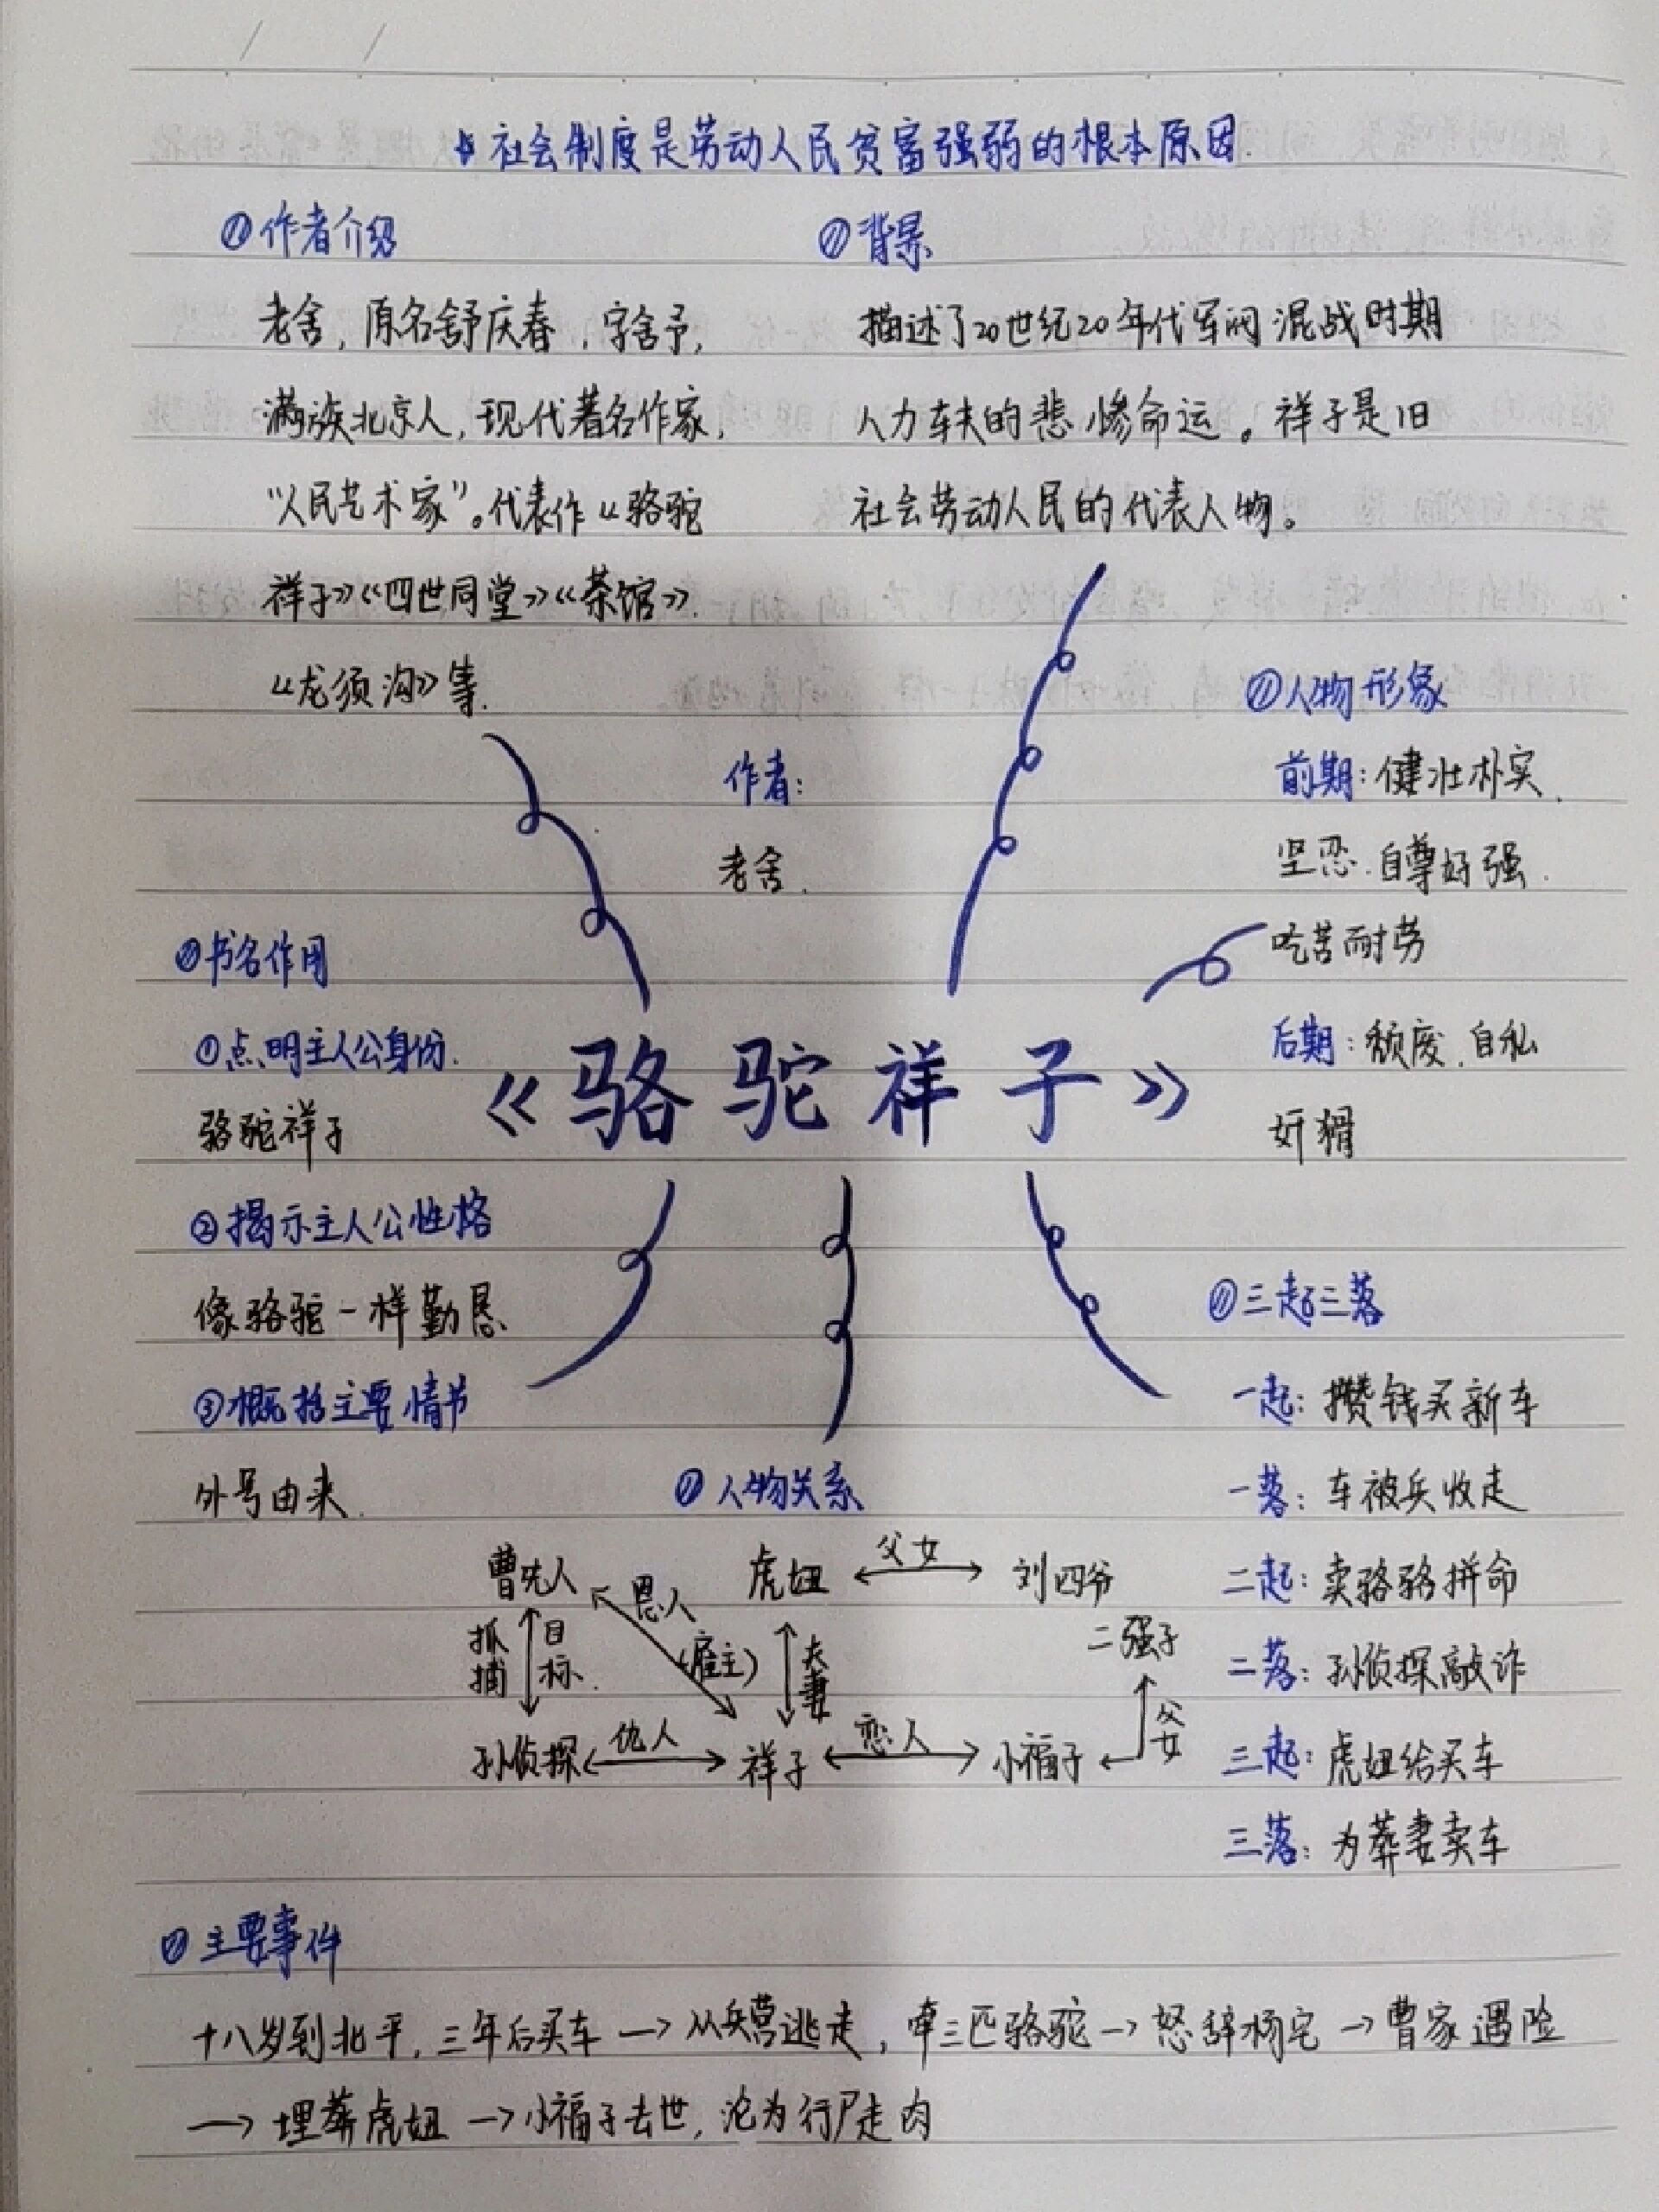 社会制度是劳动人民贫富强弱的根本原因.
作者介绍
老舍,原名舒庆春,字舍予,
满族北京人,现代著名作家,
“人民艺术家”。代表作《骆驼
祥子》《四世同堂》《茶馆》.
《龙须沟》等.
背景
描述了20世纪20年代军阀混战时期
人力车夫的悲惨命运。祥子是旧
社会劳动人民的代表人物。
作者:
老舍.
人物形象
前期:健壮朴实.
坚忍.自尊好强.
吃苦耐劳
后期:颓废.自私
奸猾
《骆驼祥子》
书名作用
①点明主人公身份.
骆驼祥子
②揭示主人公性格
像骆驼一样勤恳
③概括主要情节
外号由来.
三起三落
一起:攒钱买新车
一落:车被兵收走
二起:卖骆骆拼命
二落:孙侦探敲诈
三起:虎妞给买车
三落:为葬妻卖车
人物关系
曹先人 恩人 虎妞 父女 刘四爷
抓捕 目标. (雇主) 夫妻 二强子
孙侦探 仇人 祥子 恋人 小福子 父女
主要事件
十八岁到北平,三年后买车→从兵营逃走,牵三匹骆驼→怒辞杨宅→曹家遇险
→埋葬虎妞→小福子去世,沦为行尸走肉